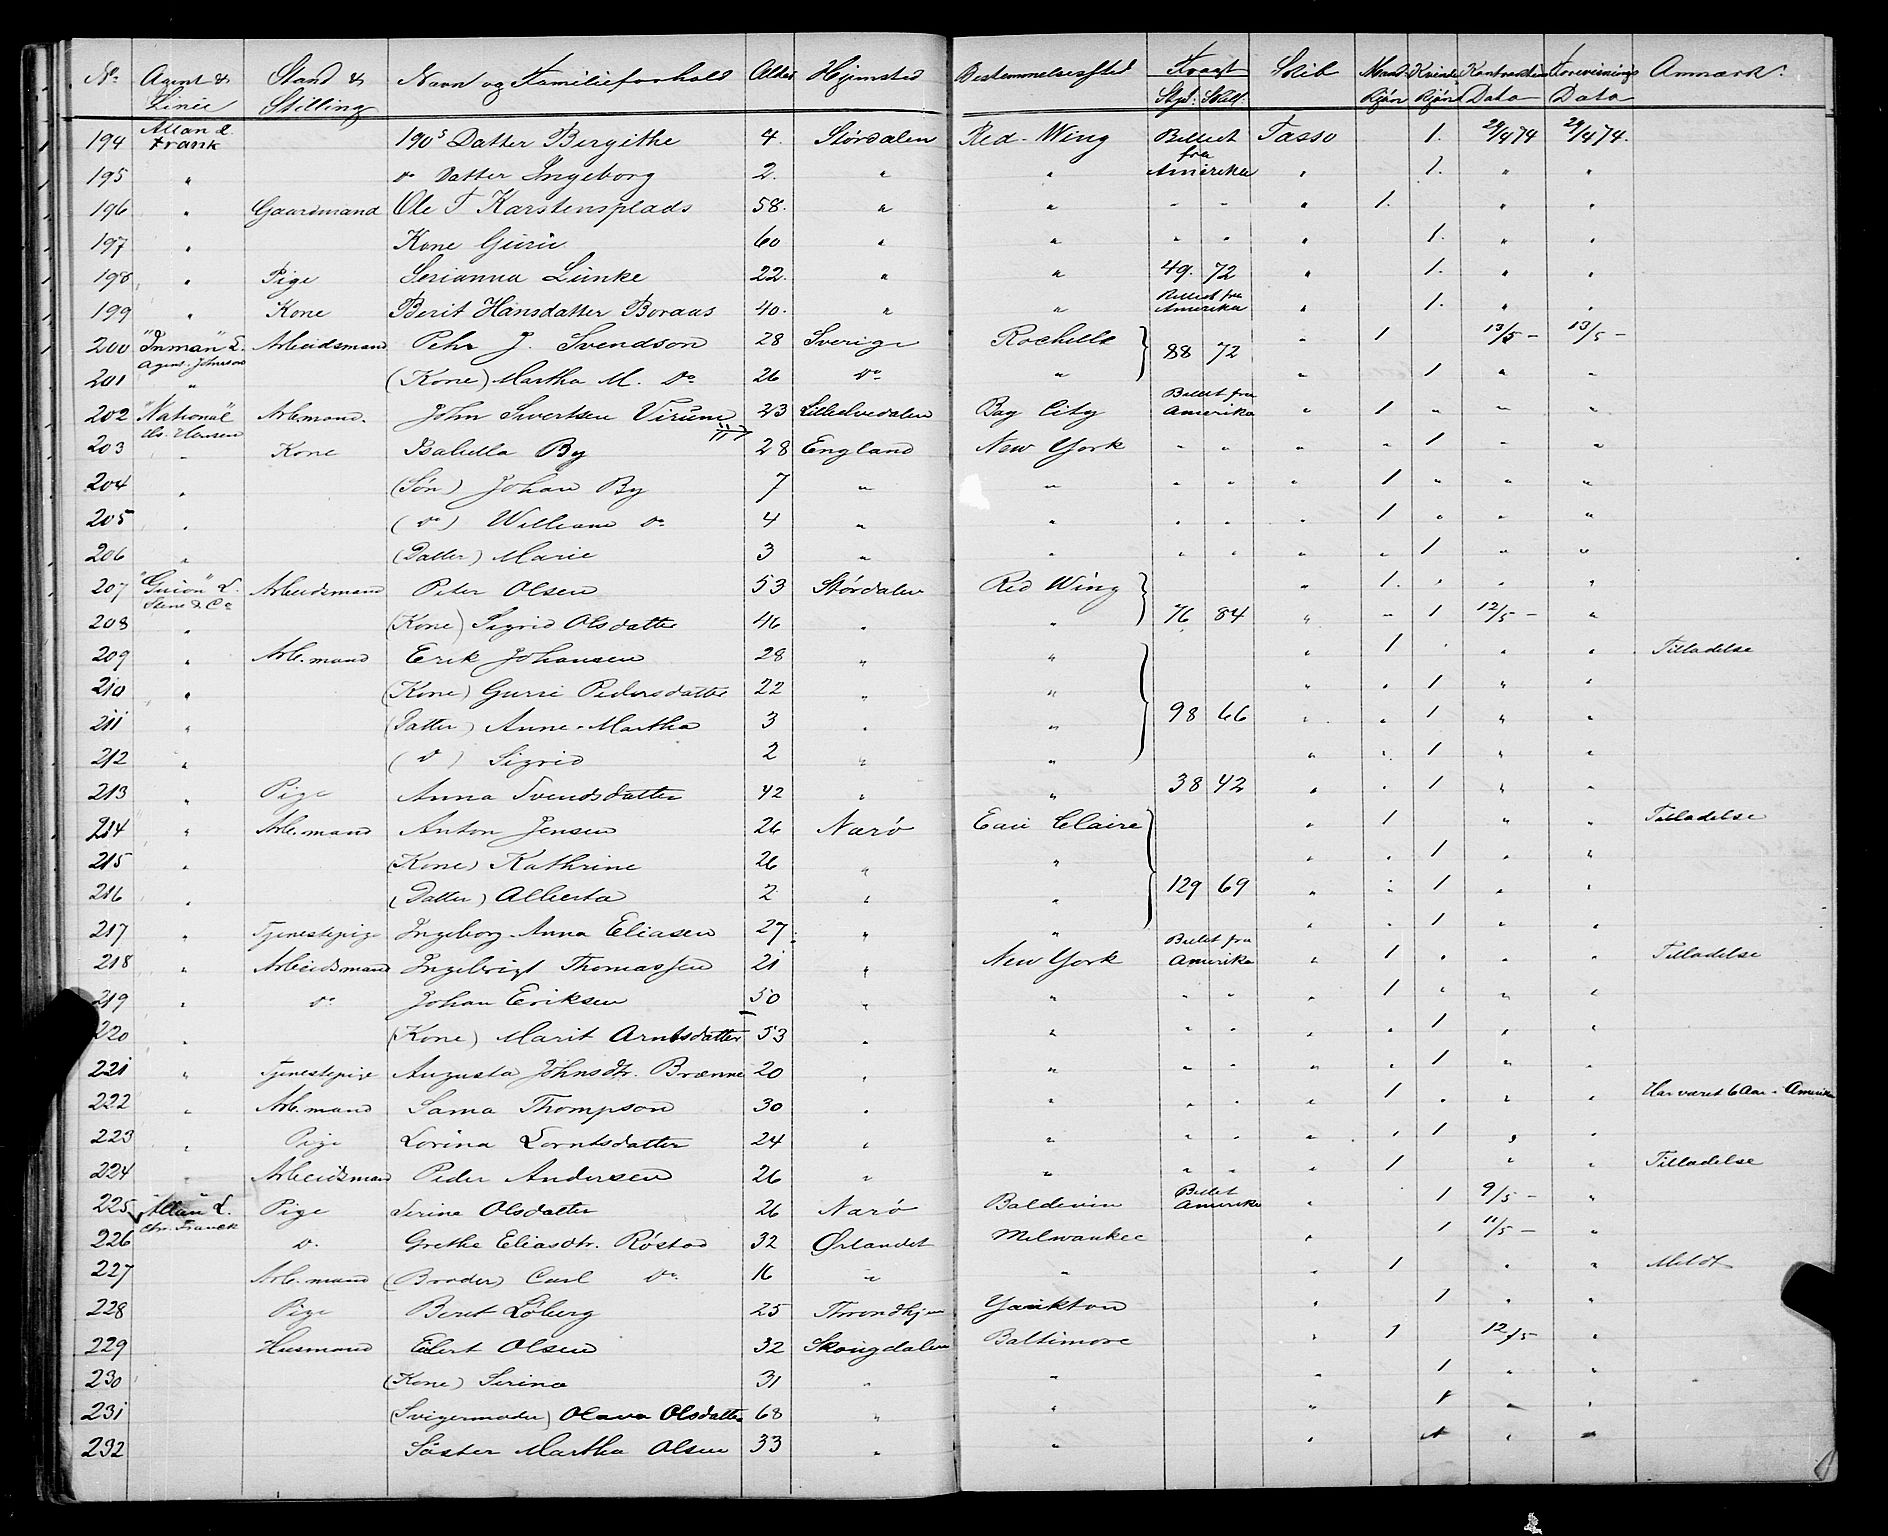 No. Agent & Linie Stand & Stilling Navn og Familieforhold Alder Hjemsted Bestemmelsessted Fragt Spd: Skill: Skib Mand-Kjön Kvinde Kjön Kontraktens Data Forevisnings Data Anmærk:
194 Allan L. Frank 190s Datter Bergithe 4. Stördalen Red-Wing Billet fra Amerika Tasso 1. 29/4 74 29/4 74.
195 " do Datter Ingeborg 2. " " " 1. " "
196 " Gaardmand Ole T Karstensplads 58. " " " " " 1. " "
197 " Kone Guru 60 " " " " " 1. " "
198 " Pige Serianna Lunke 22. " " 49. 72 " 1. " "
199 " Kone Berit Hansdatter Boraas 40. " " Billet fra Amerika " 1. " "
200 "Inman" L. Agent. Johnson Arbeidsmand Pehr J. Svendson 28 Sverige Rochelle 88 72 " 1 13/5 - 13/5 -
201 " (Kone) Martha M. do 26 do " " 1 " "
202 "National" Arb.mand. John Sivertsen Virum 23 Lilleelvedalen Bay City Billet fra Amerika " 1 " " "
203 " Kone Isabella By 28 England New York " " " " 1 " "
204 " (Sön) Johan By 7 " " " " " 1 " " "
205 " (do) William do 4 " " " " " 1 " " "
206 " (Datter) Marie 3 " " " " " " 1 " "
207 "Guion" L. Stene & Co Arbeidsmand Peter Olsen 53 Stördalen Red Wing " 1. " " "
208 " (Kone) Sigrid Olsdatter 46 " " 76 84 " " 1 12/5 - "
209 " Arb.mand Erik Johansen 28 " " " 1 " " " Tilladelse
210 " (Kone) Gurri Pedersdatter 22 " " " " 1 " "
211 " (Datter) Anne-Martha 3 " " 98 66 " " 1 " "
212 " (do) Sigrid 2 " " " " 1 " "
213 " Pige Anna Svendsdatter 42 " " 38 42 " " 1 " "
214 " Arb.mand Anton Jensen 26 Narö Eau Claire " 1 " " Tilladelse
215 " (Kone) Kathrine 26 " " " " 1 " "
216 " (Datter) Alberta 2 " " 129 69 " " 1 " "
217 " Tjenestepige Ingeborg-Anna Eliasen 27 " " " " 1 " "
218 " Arbeidsmand Ingebrigt Thomassen 21 " New York Billet fra Amerika " 1 " " " Tilladelse
219 " do Johan Eriksen 50 " " " " " 1 " " "
220 " (Kone) Marit Arntsdatter 53 " " " " " " 1 " "
221 " Tjenestepige Augusta Johnsdtr. Brænne 20 " " " " " " 1 " "
222 " Arb.mand Sama Thompson 30 " " " " " 1 " " " Har været 6 Aar i Amerika
223 " Pige Lorina Lorntsdatter 24 " " " " " " 1 " "
224 " Arbeidsmand Peder Andersen 26 " " " " " 1 " " Tilladelse
225 "Allan" L. Chr. Franck Pige Serine Olsdatter 26 Narö Baldevin Billet Amerika " 1 9/5 - "
226 do Grethe Eliasdtr. Röstad 32 Ørlandet Milwaukee " 1 11/5 - "
227 Arb.mand (Broder) Carl do 16 " " " 1 " " Meldt
228 Pige Beret Löberg 25 Throndhjem Yankton " 1 " "
229 Husmand Eilert Olsen 32 Skougdalen Baltimore " 1 12/5 "
230 (Kone) Serina 31 " " " 1 " "
231 (Svigermoder) Olava Olsdatter 68 " " " 1 " "
232 Söster Martha Olsen 33 " " " 1 " "